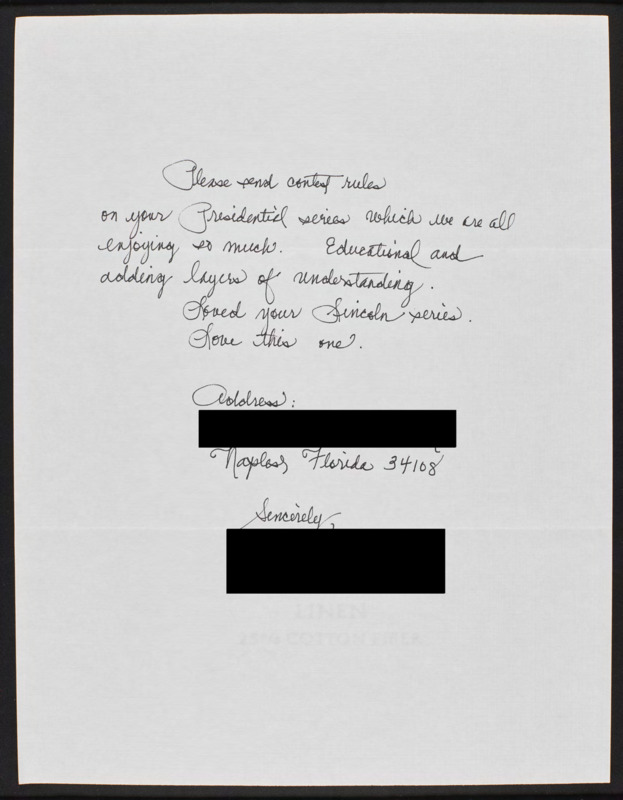 Please send contest rules
on your Presidential series which we are all
enjoying so much. Educational and
adding layers of understanding.
Loved your Lincoln series.
Love this one.
Address:
Naples, Florida 34108
Sincerely,
LINEN
25% COTTON FIBER